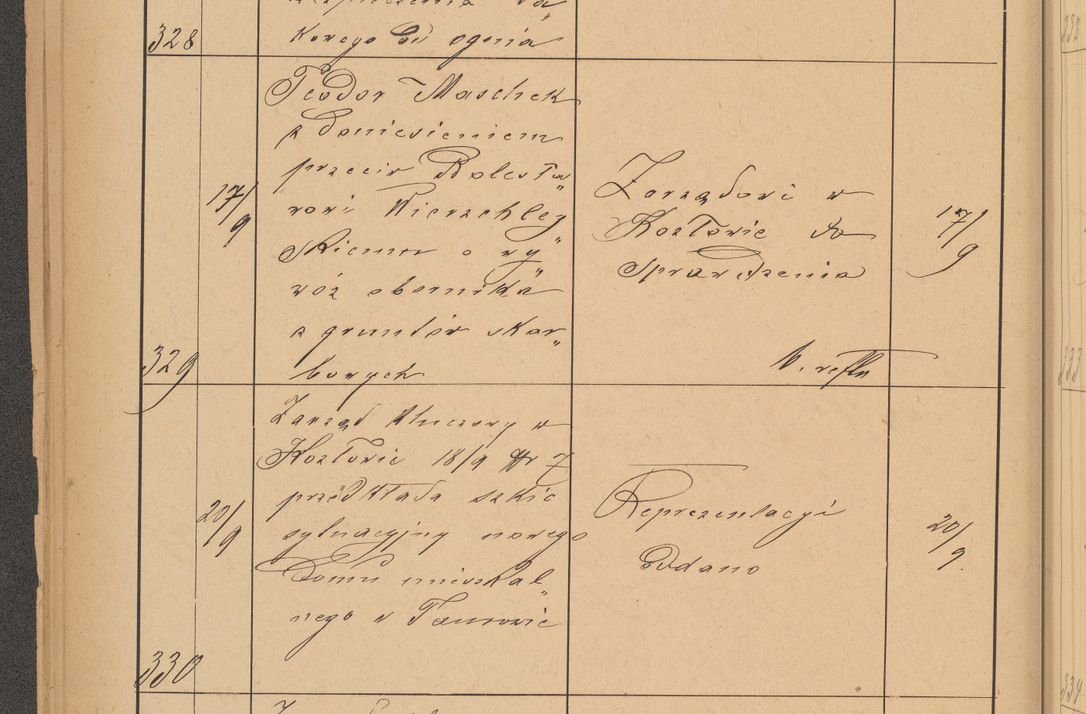 328
kowego od ognia
Teodor Maschek
z doniesieniem
przeciw Bolesła„
wowi Wierzchley„
skiemu o wy„
wóz obornika
z gruntów skar„
bowych
17/9
Zarządowi w
Kozłowie do
sprawdzenia
17/9
329
Zarząd kluczowy w
Kozłowie 18/9 Nr 7
przedkłada szkic
sytuacyjny nowego
Domu mieszkal„
nego w Taurowie
20/9
Reprezentacyi
oddano
20/9.
330
332
333
334